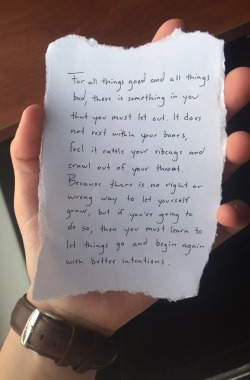 For all things good and all things
bad there is something in you
that you must let out. It does
not rest within your bones,
feel it rattle your ribcage and
crawl out of your throat.
Because there is no right or
wrong way to let yourself
grow, but if you're going to
do so, then you must learn to
let things go and begin again
with better intentions.